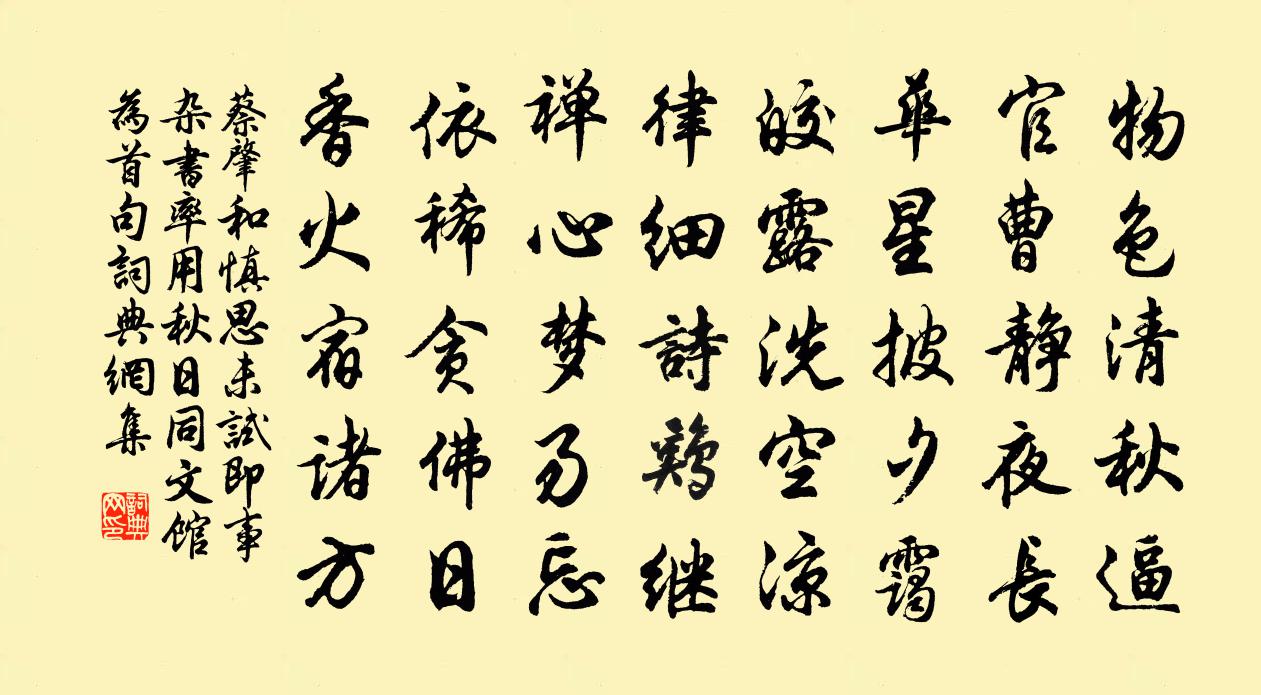 物色清秋逼
官曹静夜長
華星披夕靄
皎露洗空凉
律细詩鷄继
禅心梦易忘
依稀贪佛日
香火宿诸方
蔡肇和慎思未試即事
杂書率用秋日同文馆
為首句詞典網集
詞典网印